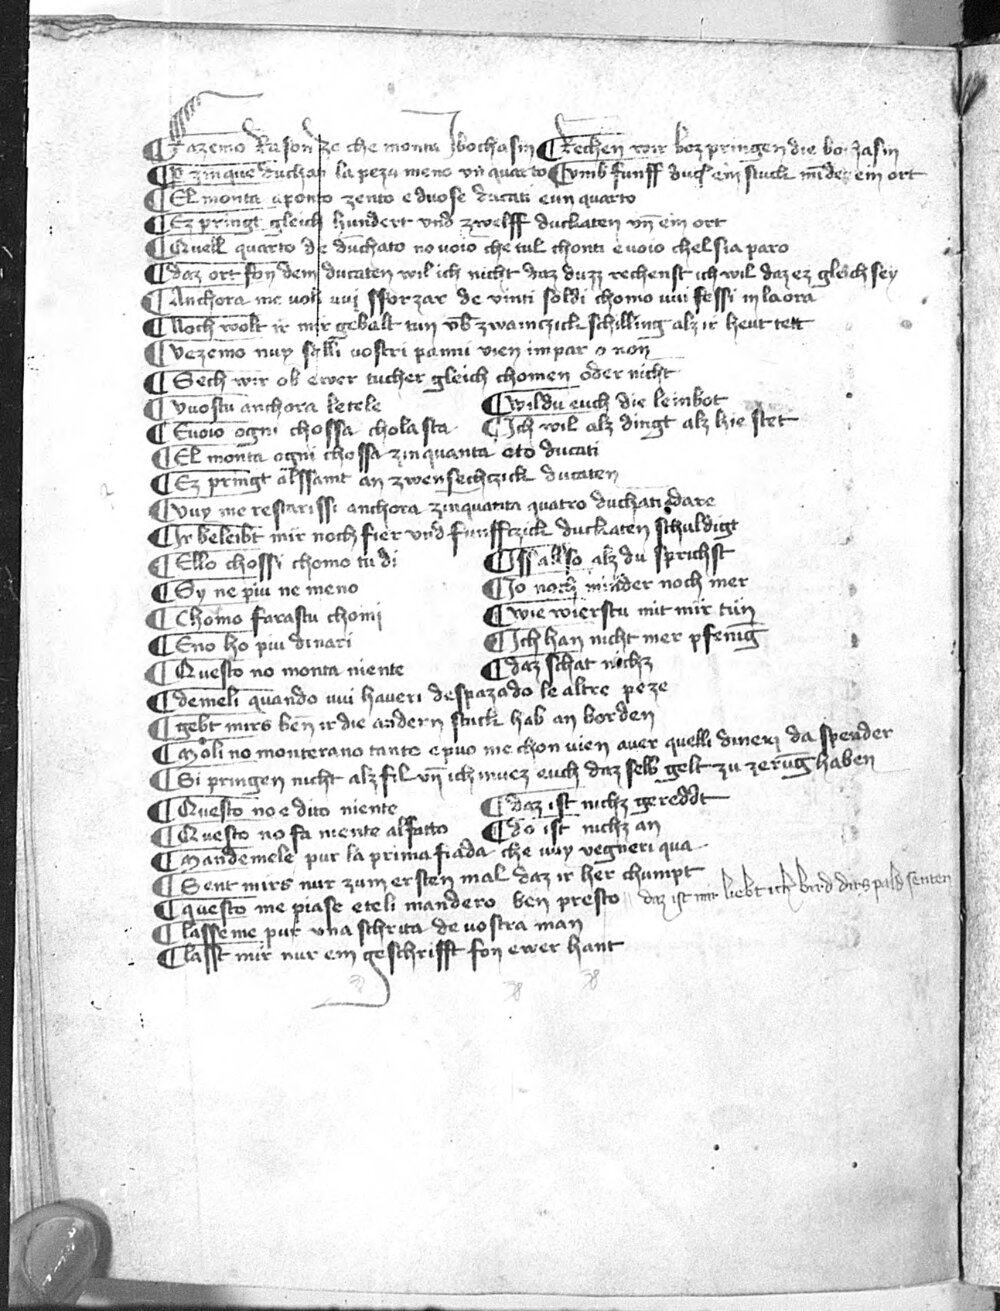 ¶ Fazemo Rason ze che monta I bochasin ¶ Rechen wir boz pringen die bo zasin
¶ P zinque duchati la peza meno un quarto ¶ Umb funff duch ein stuck minder ein ort
¶ El monta aponto zento e duose ducati e un quarto
¶ Ez pringt gleich hundert und zwelff duckaten un ein ort
¶ Quell quarto de duchato no voio che tul chonti e voio chel sia paro
¶ daz ort fon dem ducaten wil ich nicht daz duzz rechenst ich wil daz ez gleich sey
¶ Anchora me voli vui sforzar de vinti soldi chomo vui fessi in la ora
¶ Noch wolt ir mir gebalt tun umb zwainczick schilling alz ir heut tett
¶ Vezemo nuy se li vostri panni vien impar o non
¶ Sech wir ob ewer tucher gleich chomen oder nicht
¶ Vuostu anchora le tele ¶ Wildu euch die leinbot
¶ E voio ogni chossa cho la sta ¶ Ich wil alz dingt alz hie stet
¶ El monta ogni chossa zinquanta oto ducati
¶ Ez pringt alssamt an zwen sechczick ducaten
¶ Vuy me restarissi anchora zinquanta quatro duchati a dare
¶ Ir beleibt mir noch fier und funffczick duckaten schuldigt
¶ Ello chossi chomo tu di ¶ Iss also alz du sprichst
¶ Sy ne piu ne meno ¶ Jo noch minder noch mer
¶ Chomo farastu chomi ¶ Wie wierstu mit mir tun
¶ E no ho piu dinari ¶ Ich han nicht mer pfenig
¶ Questo no monta niente ¶ daz schat nichz
¶ demeli quando vui haveri despazado le altre peze
¶ gebt mirs ben ir die andern stuck hab an borden
¶ Moli no monterano tanto e puo me chon vien aver quelli dineri da spender
¶ Si pringen nicht alz fil un ich muez euch daz selb gelt zu zerung haben
¶ Questo no e dito niente ¶ daz ist nichz gereddt
¶ Questo no fa niente al fatto ¶ do ist nichz an
¶ Mandemele pur la prima fiada che vuy vegneri qua
¶ Sent mirs nur zum ersten mal daz ir her chumpt
¶ questo me piase e teli mandero ben presto daz ist mir liebt ich bird dirs pald senten
¶ lasseme pur una schrita de vostra man
¶ lasst mir nur ein geschrifft fon ewer hant